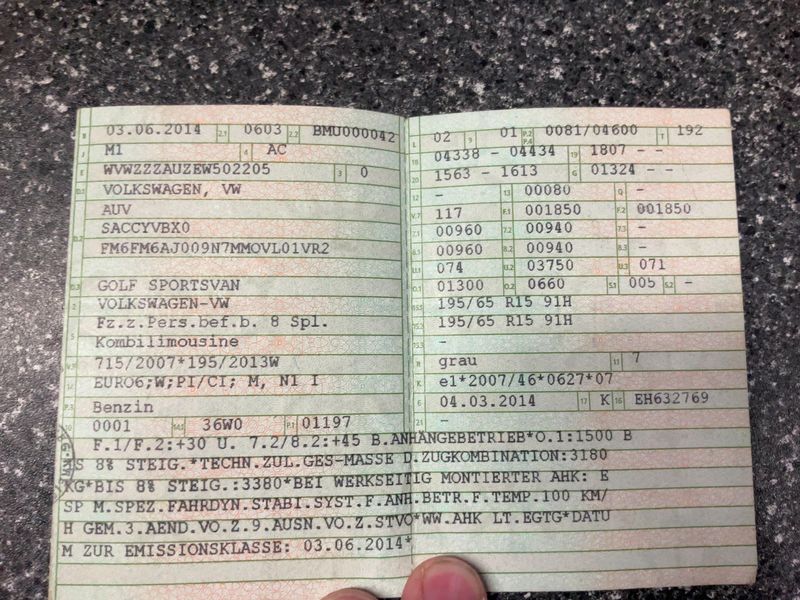 B 03.06.2014 2.1 0603 2.2 BMU000042
J M1 4 AC
E WVWZZZAUZEW502205 3 0
D.1 VOLKSWAGEN, VW
AUV
D.2 SACCYVBX0
FM6FM6AJ009N7MMOVL01VR2
D.3 GOLF SPORTSVAN
2 VOLKSWAGEN-VW
Fz.z.Pers.bef.b. 8 Spl.
5 Kombilimousine
V.9 715/2007*195/2013W
14 EURO6;W;PI/CI; M, N1 I
P.3 Benzin
10 0001 14.1 36W0 P.1 01197
L 02 9 01 P.2 P.4 0081/04600 T 192
18 04338 - 04434 19 1807 - -
20 1563 - 1613 G 01324 - -
12 - 13 00080 Q -
V.7 117 F.1 001850 F.2 001850
7.1 00960 7.2 00940 7.3 -
8.1 00960 8.2 00940 8.3 -
U.1 074 U.2 03750 U.3 071
O.1 01300 O.2 0660 S.1 005 S.2 -
15.1 195/65 R15 91H
15.2 195/65 R15 91H
15.3 -
R grau 11 7
K e1*2007/46*0627*07
6 04.03.2014 17 K 16 EH632769
21 -
F.1/F.2:+30 U. 7.2/8.2:+45 B.ANHÄNGEBETRIEB*O.1:1500 B
IS 8% STEIG.*TECHN.ZUL.GES-MASSE D.ZUGKOMBINATION:3180
KG*BIS 8% STEIG.:3380*BEI WERKSEITIG MONTIERTER AHK: E
SP M.SPEZ.FAHRDYN.STABI.SYST.F.ANH.BETR.F.TEMP.100 KM/
H GEM.3.AEND.VO.Z.9.AUSN.VO.Z.STVO*WW.AHK LT.EGTG*DATU
M ZUR EMISSIONSKLASSE: 03.06.2014*